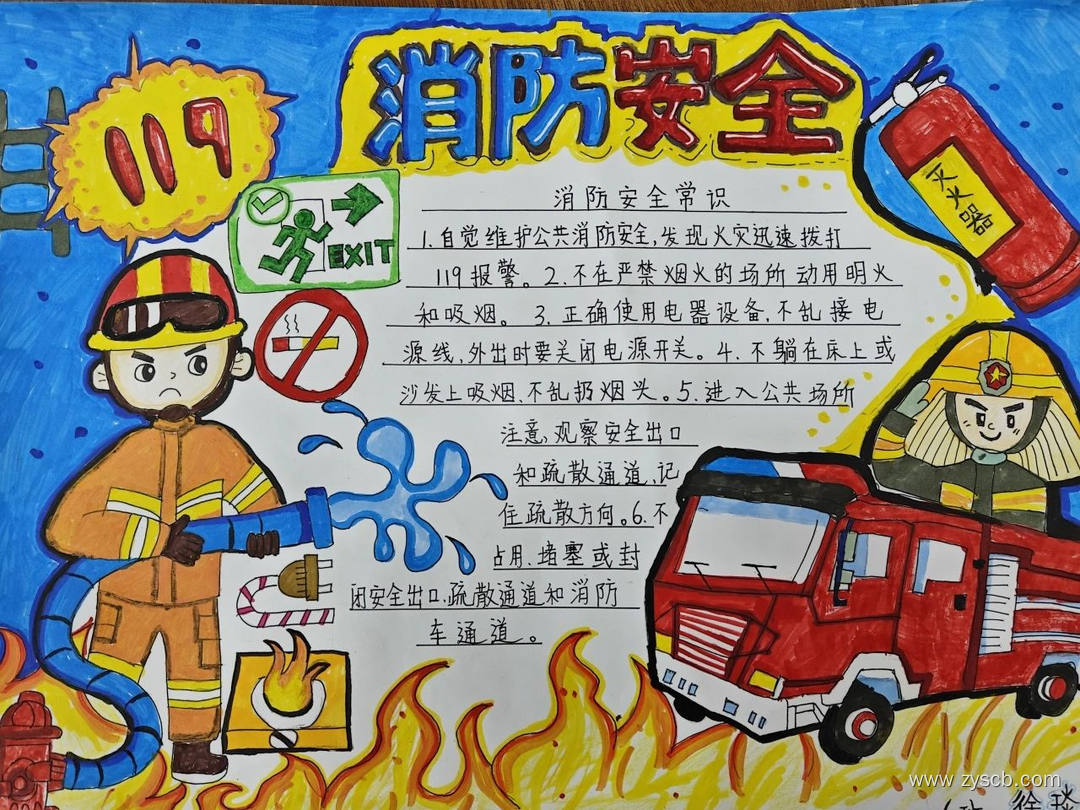 消防安全
119
灭火器
EXIT
消防安全常识
1.自觉维护公共消防安全,发现火灾迅速拨打
119报警。2.不在严禁烟火的场所动用明火
和吸烟。3.正确使用电器设备,不乱接电
源线,外出时要关闭电源开关。4.不躺在床上或
沙发上吸烟,不乱扔烟头。5.进入公共场所
注意,观察安全出口
和疏散通道,记
住疏散方向。6.不
占用、堵塞或封
闭安全出口、疏散通道和消防
车通道。
www.zyscb.com